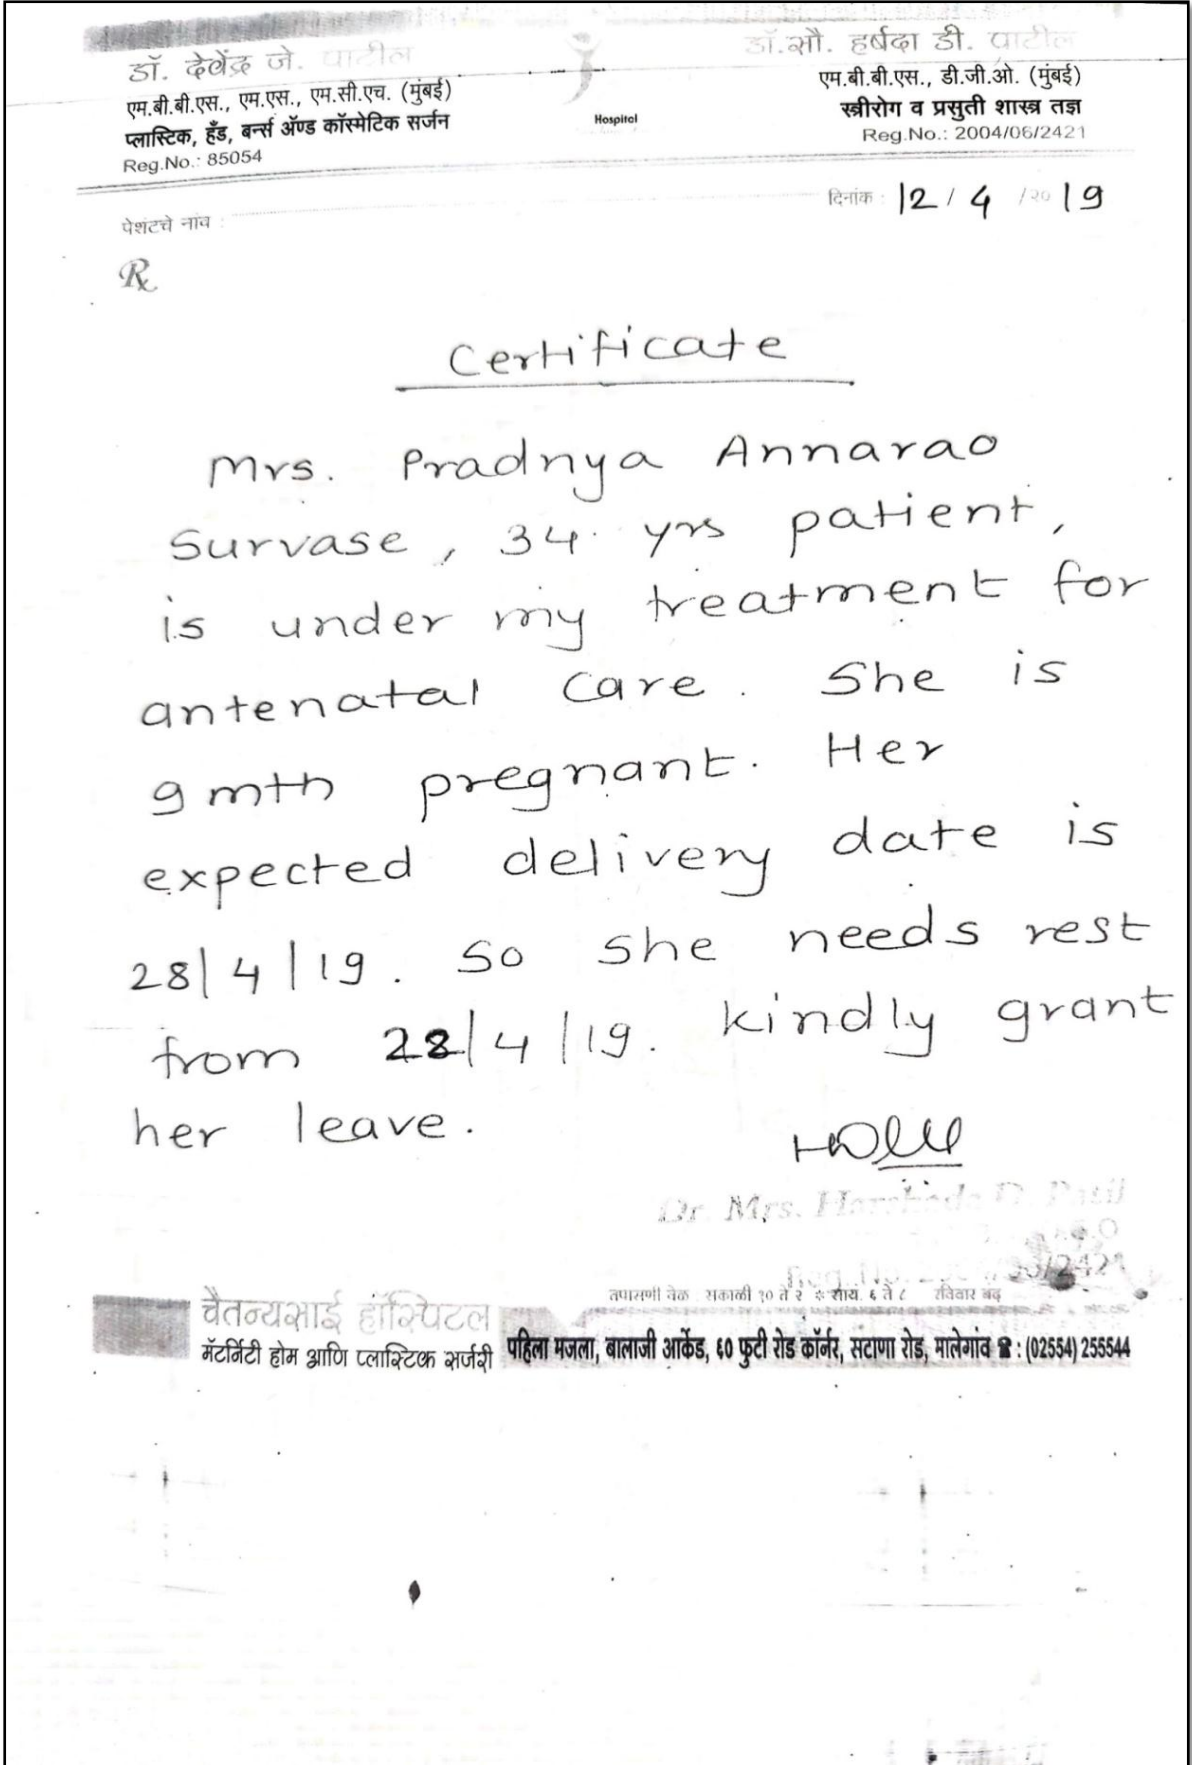 डॉ. देवेंद्र जे. पाटील
एम.बी.बी.एस., एम.एस., एम.सी.एच. (मुंबई)
प्लास्टिक, हँड, बर्न्स ॲण्ड कॉस्मेटिक सर्जन
Reg.No.: 85054
Hospital
डॉ.सौ. हर्षदा डी. पाटील
एम.बी.बी.एस., डी.जी.ओ. (मुंबई)
स्त्रीरोग व प्रसुती शास्त्र तज्ञ
Reg.No.: 2004/06/2421
दिनांक : 12 / 4 /२०19
पेशंटचे नांव :
Rx
Certificate
Mrs. Pradnya Annarao
Survase, 34 yrs patient,
is under my treatment for
antenatal care. She is
9 mth pregnant. Her
expected delivery date is
28/4/19. So she needs rest
from 22/4/19. kindly grant
her leave.
Dr. Mrs. Harshada D. Patil
Reg. No. 2421
तपासणी वेळ : सकाळी १० ते २ * सायं. ६ ते ८ रविवार बंद
चैतन्यसाई हॉस्पिटल
मॅटर्निटी होम आणि प्लास्टिक सर्जरी
पहिला मजला, बालाजी आर्केड, ६० फुटी रोड कॉर्नर, सटाणा रोड, मालेगांव ☎ : (02554) 255544